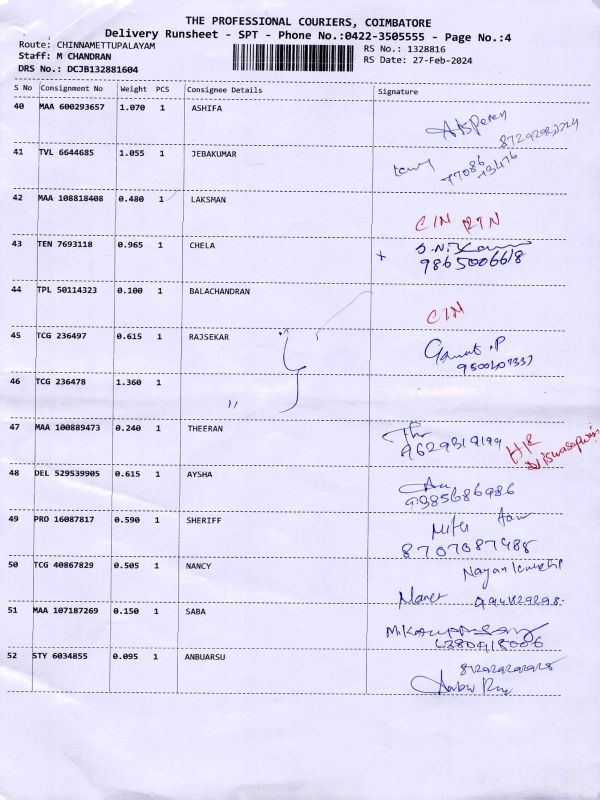 THE PROFESSIONAL COURIERS, COIMBATORE
Delivery Runsheet - SPT - Phone No.:0422-3505555 - Page No.:4
Route: CHINNAMETTUPALAYAM RS No.: 1328816
Staff: M CHANDRAN RS Date: 27-Feb-2024
DRS No.: DCJB132881604
S No Consignment No Weight PCS Consignee Details Signature
40 MAA 600293657 1.070 1 ASHIFA
41 TVL 6644685 1.055 1 JEBAKUMAR
42 MAA 108818408 0.480 1 LAKSMAN
C/N RTN
43 TEN 7693118 0.965 1 CHELA
9865006618
44 TPL 50114323 0.100 1 BALACHANDRAN
C/N
45 TCG 236497 0.615 1 RAJSEKAR
46 TCG 236478 1.360 1
47 MAA 100889473 0.240 1 THEERAN
48 DEL 529539905 0.615 1 AYSHA
9385686986
49 PRO 16087817 0.590 1 SHERIFF
8707087988
50 TCG 40867829 0.505 1 NANCY
51 MAA 107187269 0.150 1 SABA
52 STY 6034855 0.095 1 ANBUARSU